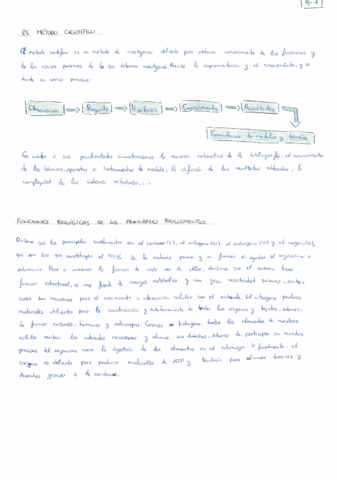 B-1
EL MÉTODO CIENTÍFICO
El método científico es un método de investigación utilizado para obtener conocimiento de las funciones y
de las causas procesos de lo que estamos investigando. Precisa la experimentación y el razonamiento, y
consta de varios procesos:
Observación Pregunta Hipótesis Experimentos Resultados
Formulación de modelos y teorías
En cuanto a sus la revisión exhaustiva de la bibliografía, el conocimiento
de las técnicas, aparatos e instrumentos de medida, la difusión de los resultados obtenidos, la
complejidad de los sistemas estudiados...
FUNCIONES BIOLÓGICAS DE LOS PRINCIPALES BIOELEMENTOS
Diremos que los principales bioelementos son el carbono (C), el nitrógeno (N), el hidrógeno (H) y el oxígeno (O),
que son los que constituyen el 99% de la materia prima, y su función es ayudar al organismo a
la función de cada uno de ellos, diremos que el carbono tiene
función estructural, es una fuente de energía metabólica y con gran reactividad química, ambas
cosas son necesarias para el crecimiento e interacción celular con el ambiente. El nitrógeno produce
materiales utilizados para la construcción y mantenimiento de todos los órganos y tejidos, además
de formar enzimas, hormonas y anticuerpos. Gracias al hidrógeno, todos los elementos de nuestras
células reciben los nutrientes necesarios y elimina sus desechos. Además de participar en muchos
procesos del organismo como la digestión de los alimentos en el estómago. Y finalmente, el
oxígeno es utilizado para producir moléculas de ATP y también para eliminar toxinas y
desechos gracias a la